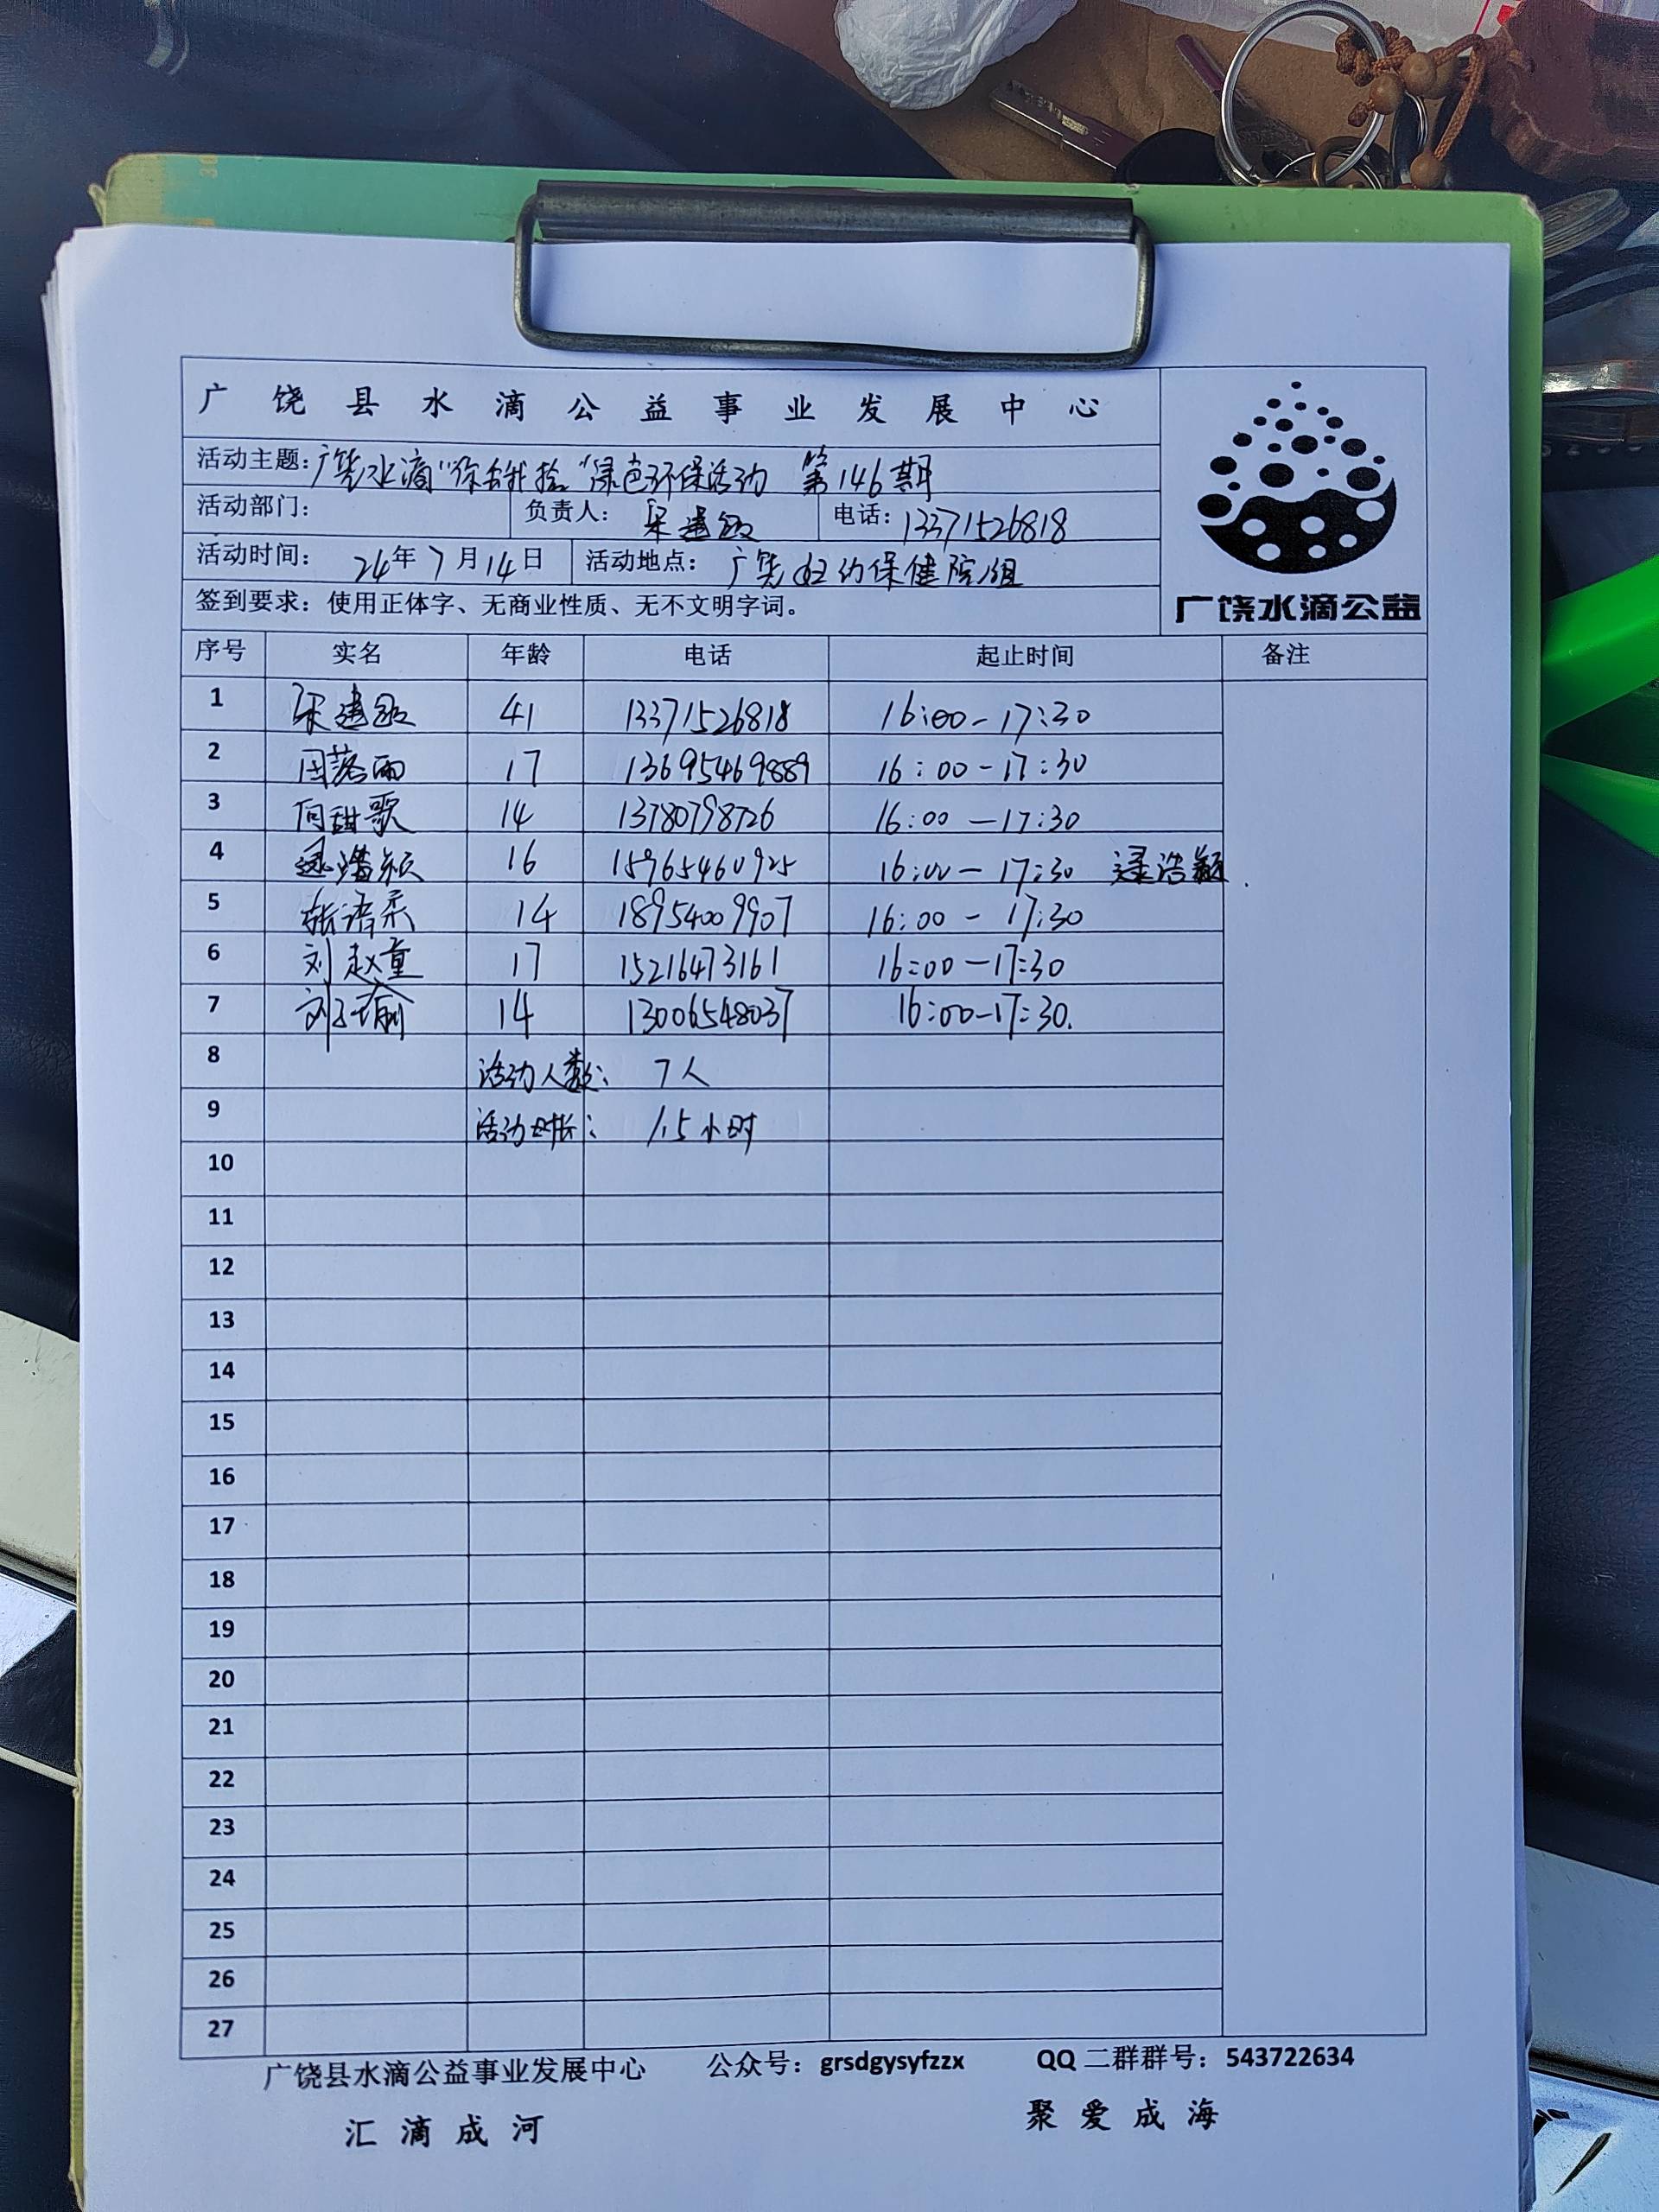 广饶县水滴公益事业发展中心
活动主题：广饶水滴“你丢我捡”绿色环保活动 第146期
活动部门： 负责人：宋建 电话：13371526818
活动时间： 24年7月14日 活动地点：广饶妇幼保健院组
签到要求：使用正体字、无商业性质、无不文明字词。
广饶水滴公益
序号 实名 年龄 电话 起止时间 备注
1 宋建 41 13371526818 16:00-17:30
2 落雨 17 13695469889 16:00-17:30
3 甜歌 14 13780798726 16:00-17:30
4 逯浩颖 16 15965460925 16:00-17:30 逯浩颖
5 张诗柔 14 18954009907 16:00-17:30
6 刘赵童 17 15216473161 16:00-17:30
7 刘子瑜 14 13006548037 16:00-17:30.
8 活动人数： 7人
9 活动时长： 1.5小时
10
11
12
13
14
15
16
17
18
19
20
21
22
23
24
25
26
27
广饶县水滴公益事业发展中心 公众号：grsdgysyfzzx QQ二群群号：543722634
汇滴成河 聚爱成海